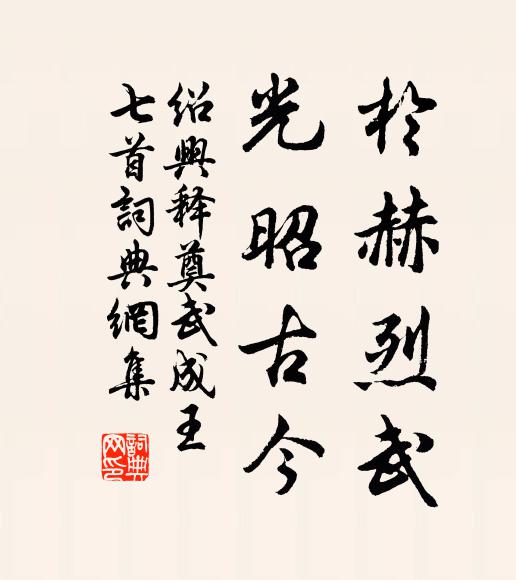 於赫烈武
光昭古今
绍興释奠武成王
七首詞典網集
詞典网印